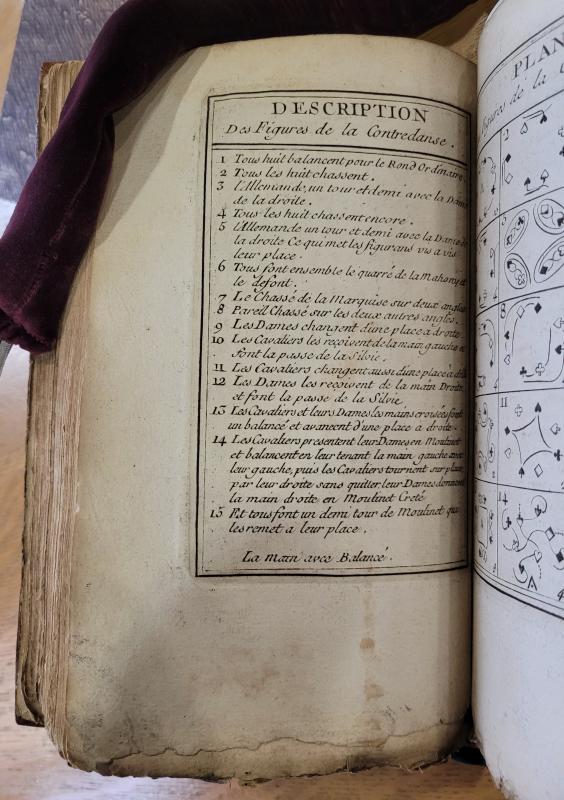 DESCRIPTION
Des Figures de la Contredanse.
1 Tous huit balancent pour le Rond Ordinaire.
2 Tous les huit chassent.
3 l'Allemande, un tour et demi avec la Dame
de la droite.
4 Tous les huit chassent encore.
5 l'Allemande un tour et demi avec la Dame de
la droite Ce qui met les figurans vis a vis
leur place.
6 Tous font ensemble le quarré de la Mahony et
le defont.
7 Le Chassé de la Marquise sur deux angles
8 Pareil Chassé sur les deux autres angles.
9 Les Dames changent d'une place a droite.
10 Les Cavaliers les reçoivent de la main gauche et
font la passe de la Silvie.
11 Les Cavaliers changent aussi d'une place a
12 Les Dames les reçoivent de la main Droite
et font la passe de la Silvie
13 Les Cavaliers et leurs Dames les mains croisées font
un balancé et avancent d'une place a droite.
14 Les Cavaliers presentent leur Dames en Moulinet
et balancent en leur tenant la main gauche avec
leur gauche, puis les Cavaliers tournent sur place
par leur droite sans quitter leur Dames donnent
la main droite en Moulinet
15 Et tous font un demi tour de Moulinet qui
les remet a leur place.
La main avec Balancé.
PLAN
figures de la
2
8
11
14
4